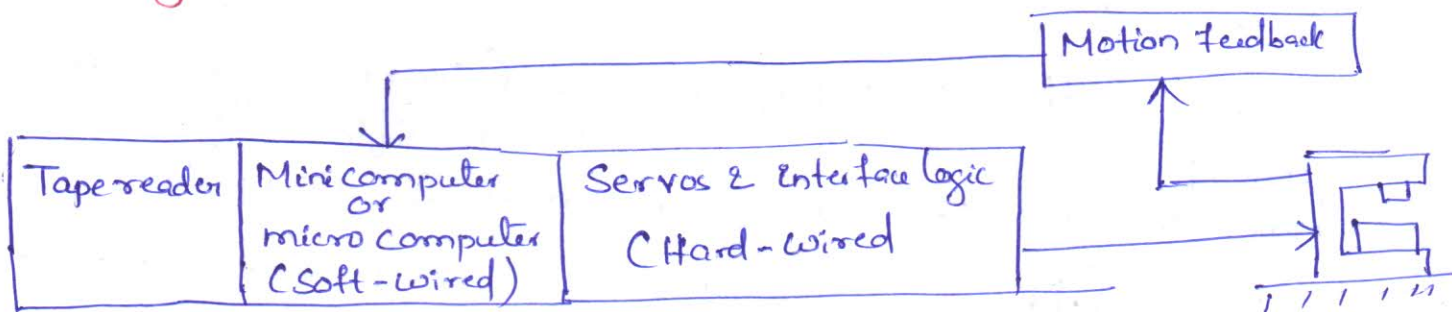 Motion feedback
Tape reader
Minicomputer
or
micro computer
(Soft-wired)
Servos & Interface logic
(Hard-wired